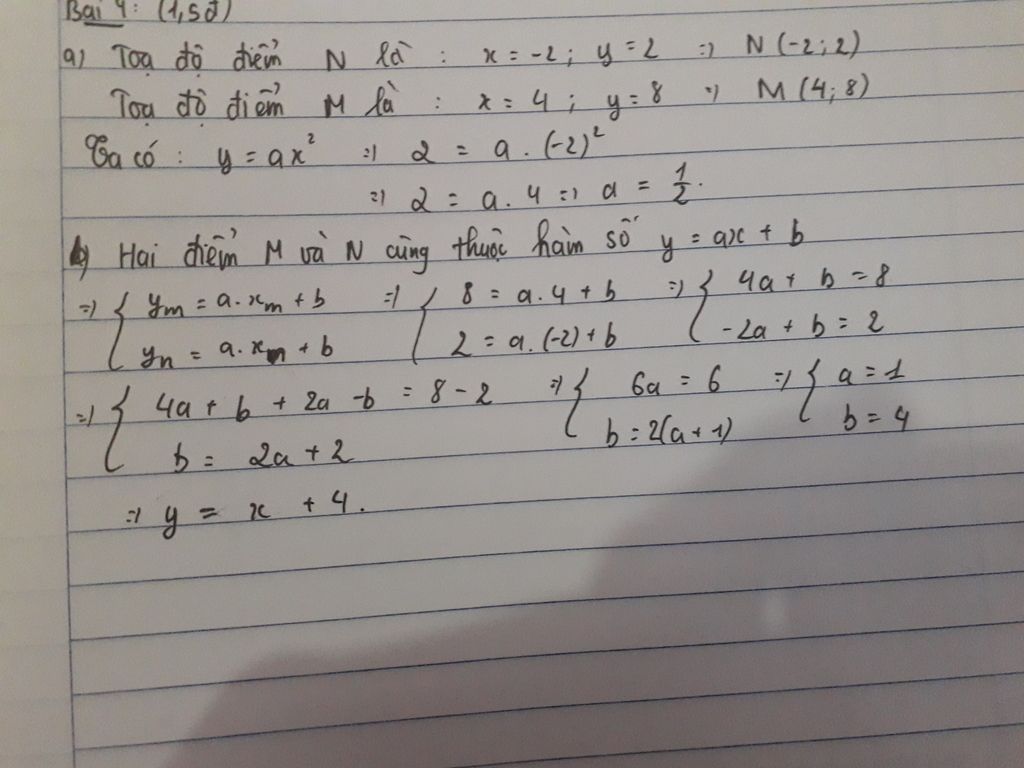 Bài 4: (1,5đ)
a) Toạ độ điểm N là : x = -2 ; y = 2 => N (-2 ; 2)
Toạ độ điểm M là : x = 4 ; y = 8 => M (4 ; 8)
Ta có : y = ax² => 2 = a . (-2)²
=> 2 = a . 4 => a = 1/2.
b) Hai điểm M và N cùng thuộc hàm số y = ax + b
=> { ym = a . xm + b => { 8 = a . 4 + b => { 4a + b = 8
yn = a . xn + b 2 = a . (-2) + b -2a + b = 2
=> { 4a + b + 2a - b = 8 - 2 => { 6a = 6 => { a = 1
b = 2a + 2 b = 2(a + 1) b = 4
=> y = x + 4.